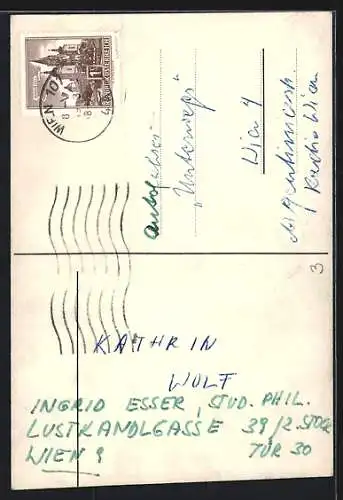 WIEN 101
REPUBLIK ÖSTERREICH
Autofahrer
„Unterwegs“
Wien 4
Argentinierstr.
Radio Wien
3
KATHRIN
WOLF
INGRID ESSER, STUD. PHIL.
LUSTKANDLGASSE 39/2. STOCK
WIEN 9 TÜR 30